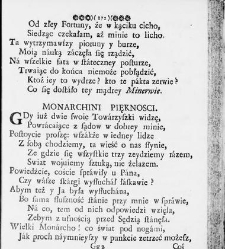 )(212)(
Od złey Fortuny, że w kąciku cicho,
Siedząc czekałam, aż minie to licho.
Ta wytrzymawszy pioruny y burze,
Moią nauką zaczęła się rządzić,
Na wszelkie fata w státeczney posturze,
Trwaiąc do końca niemoże pobłądzić,
Ktoż iey to wydrze? kto te pakta zerwie?
Co się dostało tey mądrey Minerwie.
MONARCHINI PIĘKNOSCI.
GDy iuż dwie swoie Towárzyszki widzę,
Powrácaiące z sądow w dobrey minie,
Postoycie proszę: wszákże w iedney lidze
Z sobą chodziemy, ta wieść o nas słynie,
Ze gdzie się wszystkie trzy zeydziemy rázem,
Swiat woiuiemy sztuką, nie żelázem.
Powiedzcie, coście spráwiły u Pána,
Czy wásze skárgi wysłuchał łáskáwie?
Abym też y Ja była wysłuchána,
Bo suma słuszność stánie przy mnie w spráwie,
Ná co, tem od nich odpowiedzi wzięła,
Zebym z ufnością przed Sędzią stánęła.
Wielki Monárcho! co świat pod nogámi,
Jak proch náymnieyszy w punkcie zetrzeć możesz,
Coś